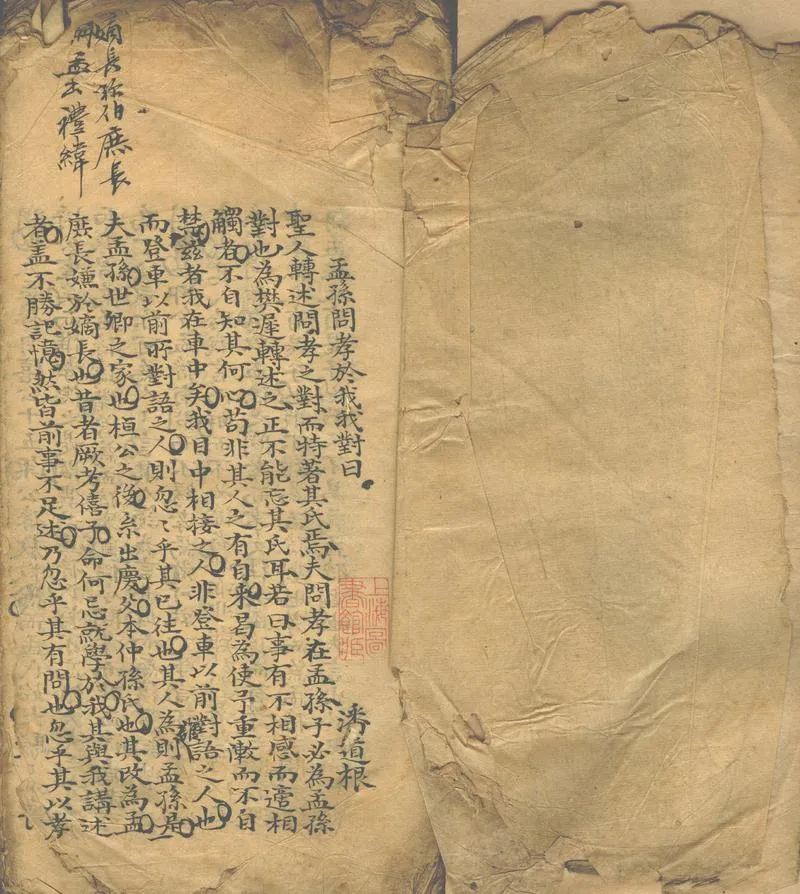 嫡長称伯庶長
称孟出禮緯
孟孫問孝於我我對曰
潘道根
聖人轉述問孝之對而特著其氏焉夫問孝在孟孫子必為孟孫
對也為樊遲轉述之正不能忘其氏耳若曰事有不相感而適相
觸者不自知其何心苟非其人之有自来曷為使予重數而不自
禁兹者我在車中矣我目中相接之人非登車以前對語之人也
而登車以前所對語之人則忽〻乎其已往也其人為則孟孫是
夫孟孫世卿之家也桓公之後系出慶父本仲孫氏也其改為孟
庶長嫌於嫡長也昔者厥考僖子命何忌就學於我其與我講述
者盖不勝記憶然皆前事不足述乃忽乎其有問也忽乎其以孝
上海圖
書館藏